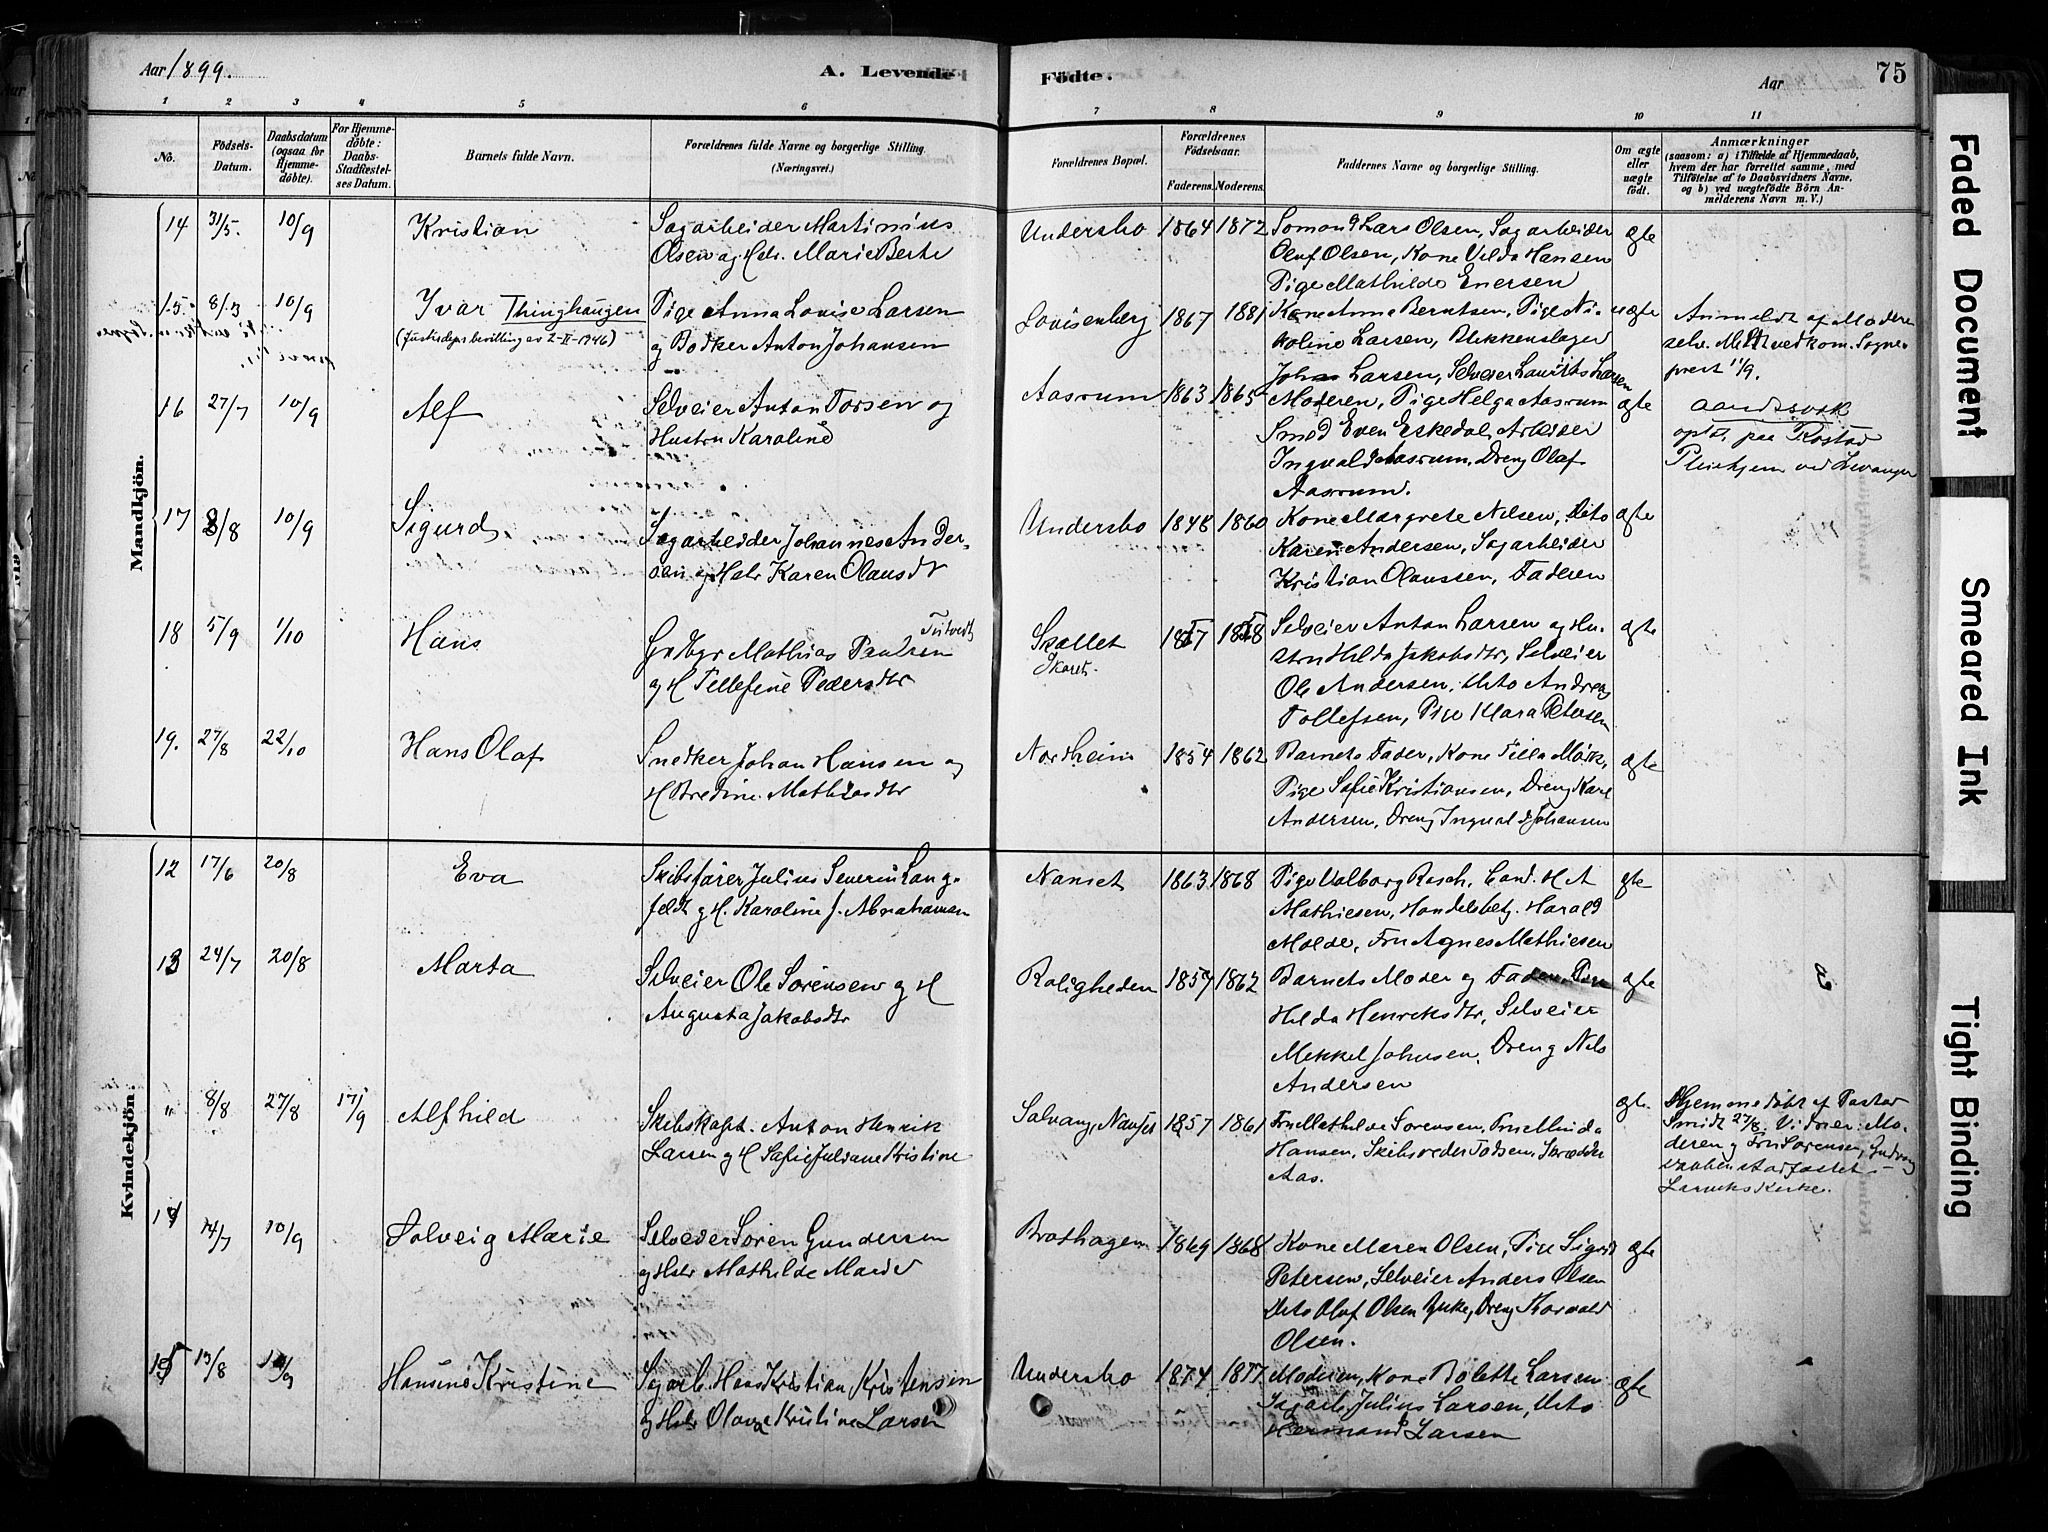 Aar 1899.
A. Levende
Födte.
Aar
75
1 2 3 4 5 6 7 8 9 10 11
No.
Födsels-Datum.
Daabsdatum (ogsaa for Hjemme-döbte).
For Hjemme-döbte: Daabs-Stadfæstel-ses Datum.
Barnets fulde Navn.
Forældrenes fulde Navne og borgerlige Stilling. (Næringsvei.)
Forældrenes Bopæl.
Forældrenes Födselsaar.
Faderens. Moderens.
Faddernes Navne og borgerlige Stilling.
Om ægte eller uægte födt.
Anmærkninger
(saasom: a) i Tilfælde af Hjemmedaab, hvem der har forrettet samme, med Tilföielse af to Daabsvidners Navne, og b) ved uægtefödte Börn An-melderens Navn m. V.)
Mandkjön.
14 31/5. 10/9 Kristian
Sagarbeider Martinius
Olsen og Hstr. Marie Berte
Undersbo 1864 1872
Lars Olsen, Sagarbeider
Oluf Olsen, Kone Hansen
Pige Mathilde Enersen
ægte
15. 8/3 10/9 Ivar Thinghaugen
(Justisdeps bevilling av 2-II-1946)
Pige Anna Lovise Larsen
og Bødker Anton Johansen
Lovisenberg 1867 1881
Kone Anna Berntsen, Pige Ni-
koline Larsen, Blikkenslager
Johan Larsen, Selveier Laurits Larsen
uægte
Anmeldt af Moderen
selv. Meldt vedkom. Sogne-
prest 11/9.
16 27/7 10/9 Alf
Selveier Anton Torsen og
Hustru Karoline
Aasrum 1863 1865
Moderen, Pige Helga Aasrum
Smed Even Eskedal, Arbeider
Ingvald Aasrum, Dreng Olaf
Aasrum.
ægte
aandssvak
opt. paa Rostad
Pleiehjem ved Levanger
17 8/8 10/9 Sigurd
Sagarbeider Johannes Ander-
sen og Hstr Karen Olausdtr
Undersbo 1848 1860
Kone Margrete Nilsen, Dito
Karen Andersen, Sagarbeider
Kristian Olaussen, Faderen
ægte
18 5/9 1/10 Hans
Gbr Mathias Paulsen Tutvedt
og H Tellefine Pedersdtr
Skallet
Skaret.
Selveier Anton Larsen og Hu-
stru Hilda Jakobsdtr, Selveier
Ole Andersen, Dito Andreas
Tollefsen, Pige Klara Petersen
ægte
19. 27/8 22/10 Hans Olaf
Snedker Johan Hansen og
H Bredine Mathisdtr
Nordheim 1854 1862
Barnets Fader, Kone Tilla Mørk,
Pige Sofie Kristiansen, Dreng Karl
Andersen, Dreng Ingvald Johansen
ægte
Kvindekjön.
12 17/6 20/8 Eva
Skibsfører Julius Severin Lang-
feldt og H. Karoline J. Abrahamsen
Nanset 1863 1868
Pige Valborg Rasch, Cand. H A
Mathiesen, Handelsbetj. Harald
Molde, Fru Agnes Mathiesen
ægte
13 24/7 20/8 Marta
Selveier Ole Sørensen og H
Augusta Jakobsdtr
Roligheden 1857 1862
Barnets Moder og Fader, Pige
Hilda Henriksdtr, Selveier
Mekkel Johnsen, Dreng Nils
Andersen
ægte
" 8/8 27/8 17/9 Alfhild
Skibskapt. Anton Henrik
Larsen og H Sofie Juliane Kristine
Solvang, Nanset 1857 1861
Fru Mathilde Sørensen, Fru Minda
Hansen, Skibsreder Todsen, Skrædder
Aas.
ægte.
Hjemmedøbt af Pastor
Smidt 27/8. Vidner: Mo-
deren og Fru Sørensen,
Daaben stadfæstet i
Larviks Kirke.
14 14/7 10/9 Solveig Marie
Selveier Søren Gundersen
og Hstr Mathilde Marie
Brathagen 1869 1868
Kone Maren Olsen, Pige Sigrid
Petersen, Selveier Anders Olsen
Dito Oluf Olsen, Dreng Thorvald
Olsen.
ægte
15 13/8 Hansine Kristine
Sagarb. Hans Kristian Kristensen
og Hstr Olava Kristine Larsen
Undersbo 1874 1877
Moderen, Kone Bolette Larsen
Sagarb. Julius Larsen, Dito
Hermand Larsen
ægte
Faded Document
Smeared Ink
Tight Binding